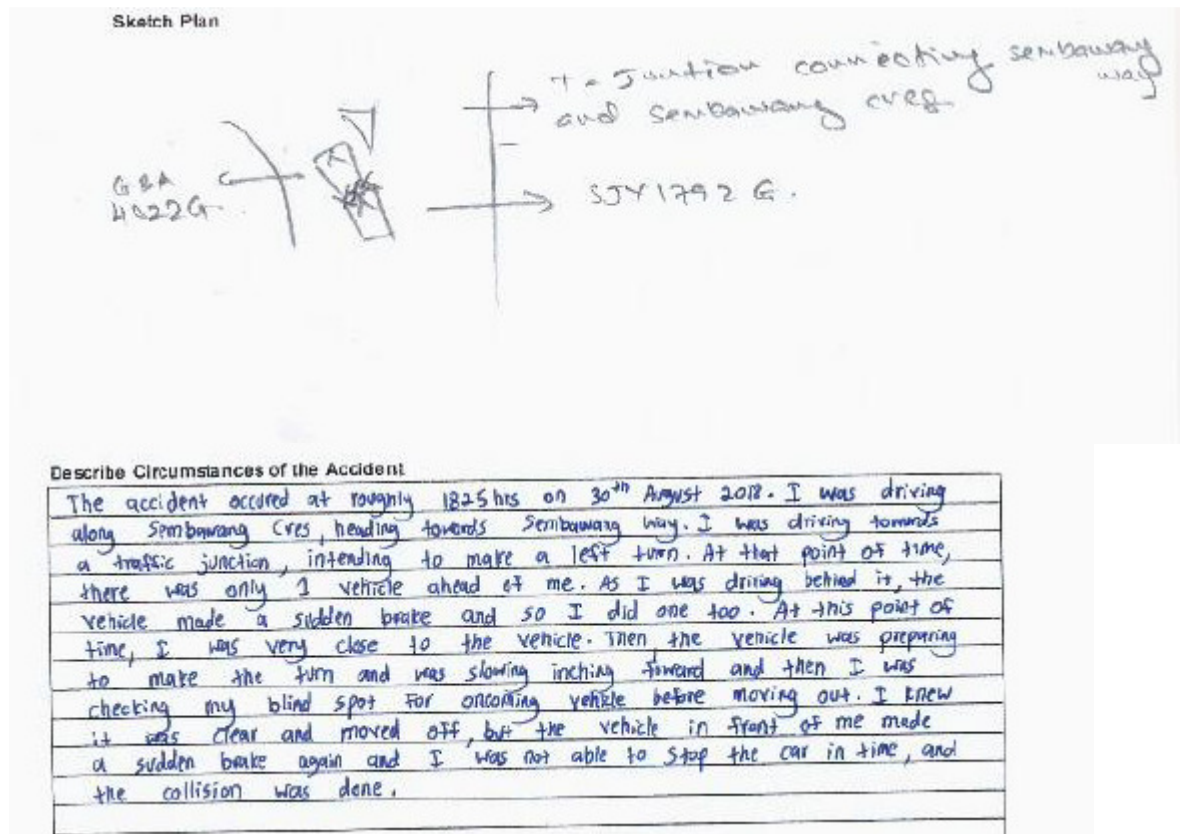 Sketch Plan
T-Juntion connecting sembawang way
and sembawang cres.
GBA
4022G.
SJY1792G.
Describe Circumstances of the Accident
The accident occured at roughly 1825 hrs on 30th August 2018. I was driving
along Sembawang Cres, heading towards Sembawang Way. I was driving towards
a traffic junction, intending to make a left turn. At that point of time,
there was only 1 vehicle ahead of me. As I was driving behind it, the
vehicle made a sudden brake and so I did one too. At this point of
time, I was very close to the vehicle. Then the vehicle was preparing
to make the turn and was slowing inching forward and then I was
checking my blind spot for oncoming vehicle before moving out. I knew
it was clear and moved off, but the vehicle in front of me made
a sudden brake again and I was not able to stop the car in time, and
the collision was done.